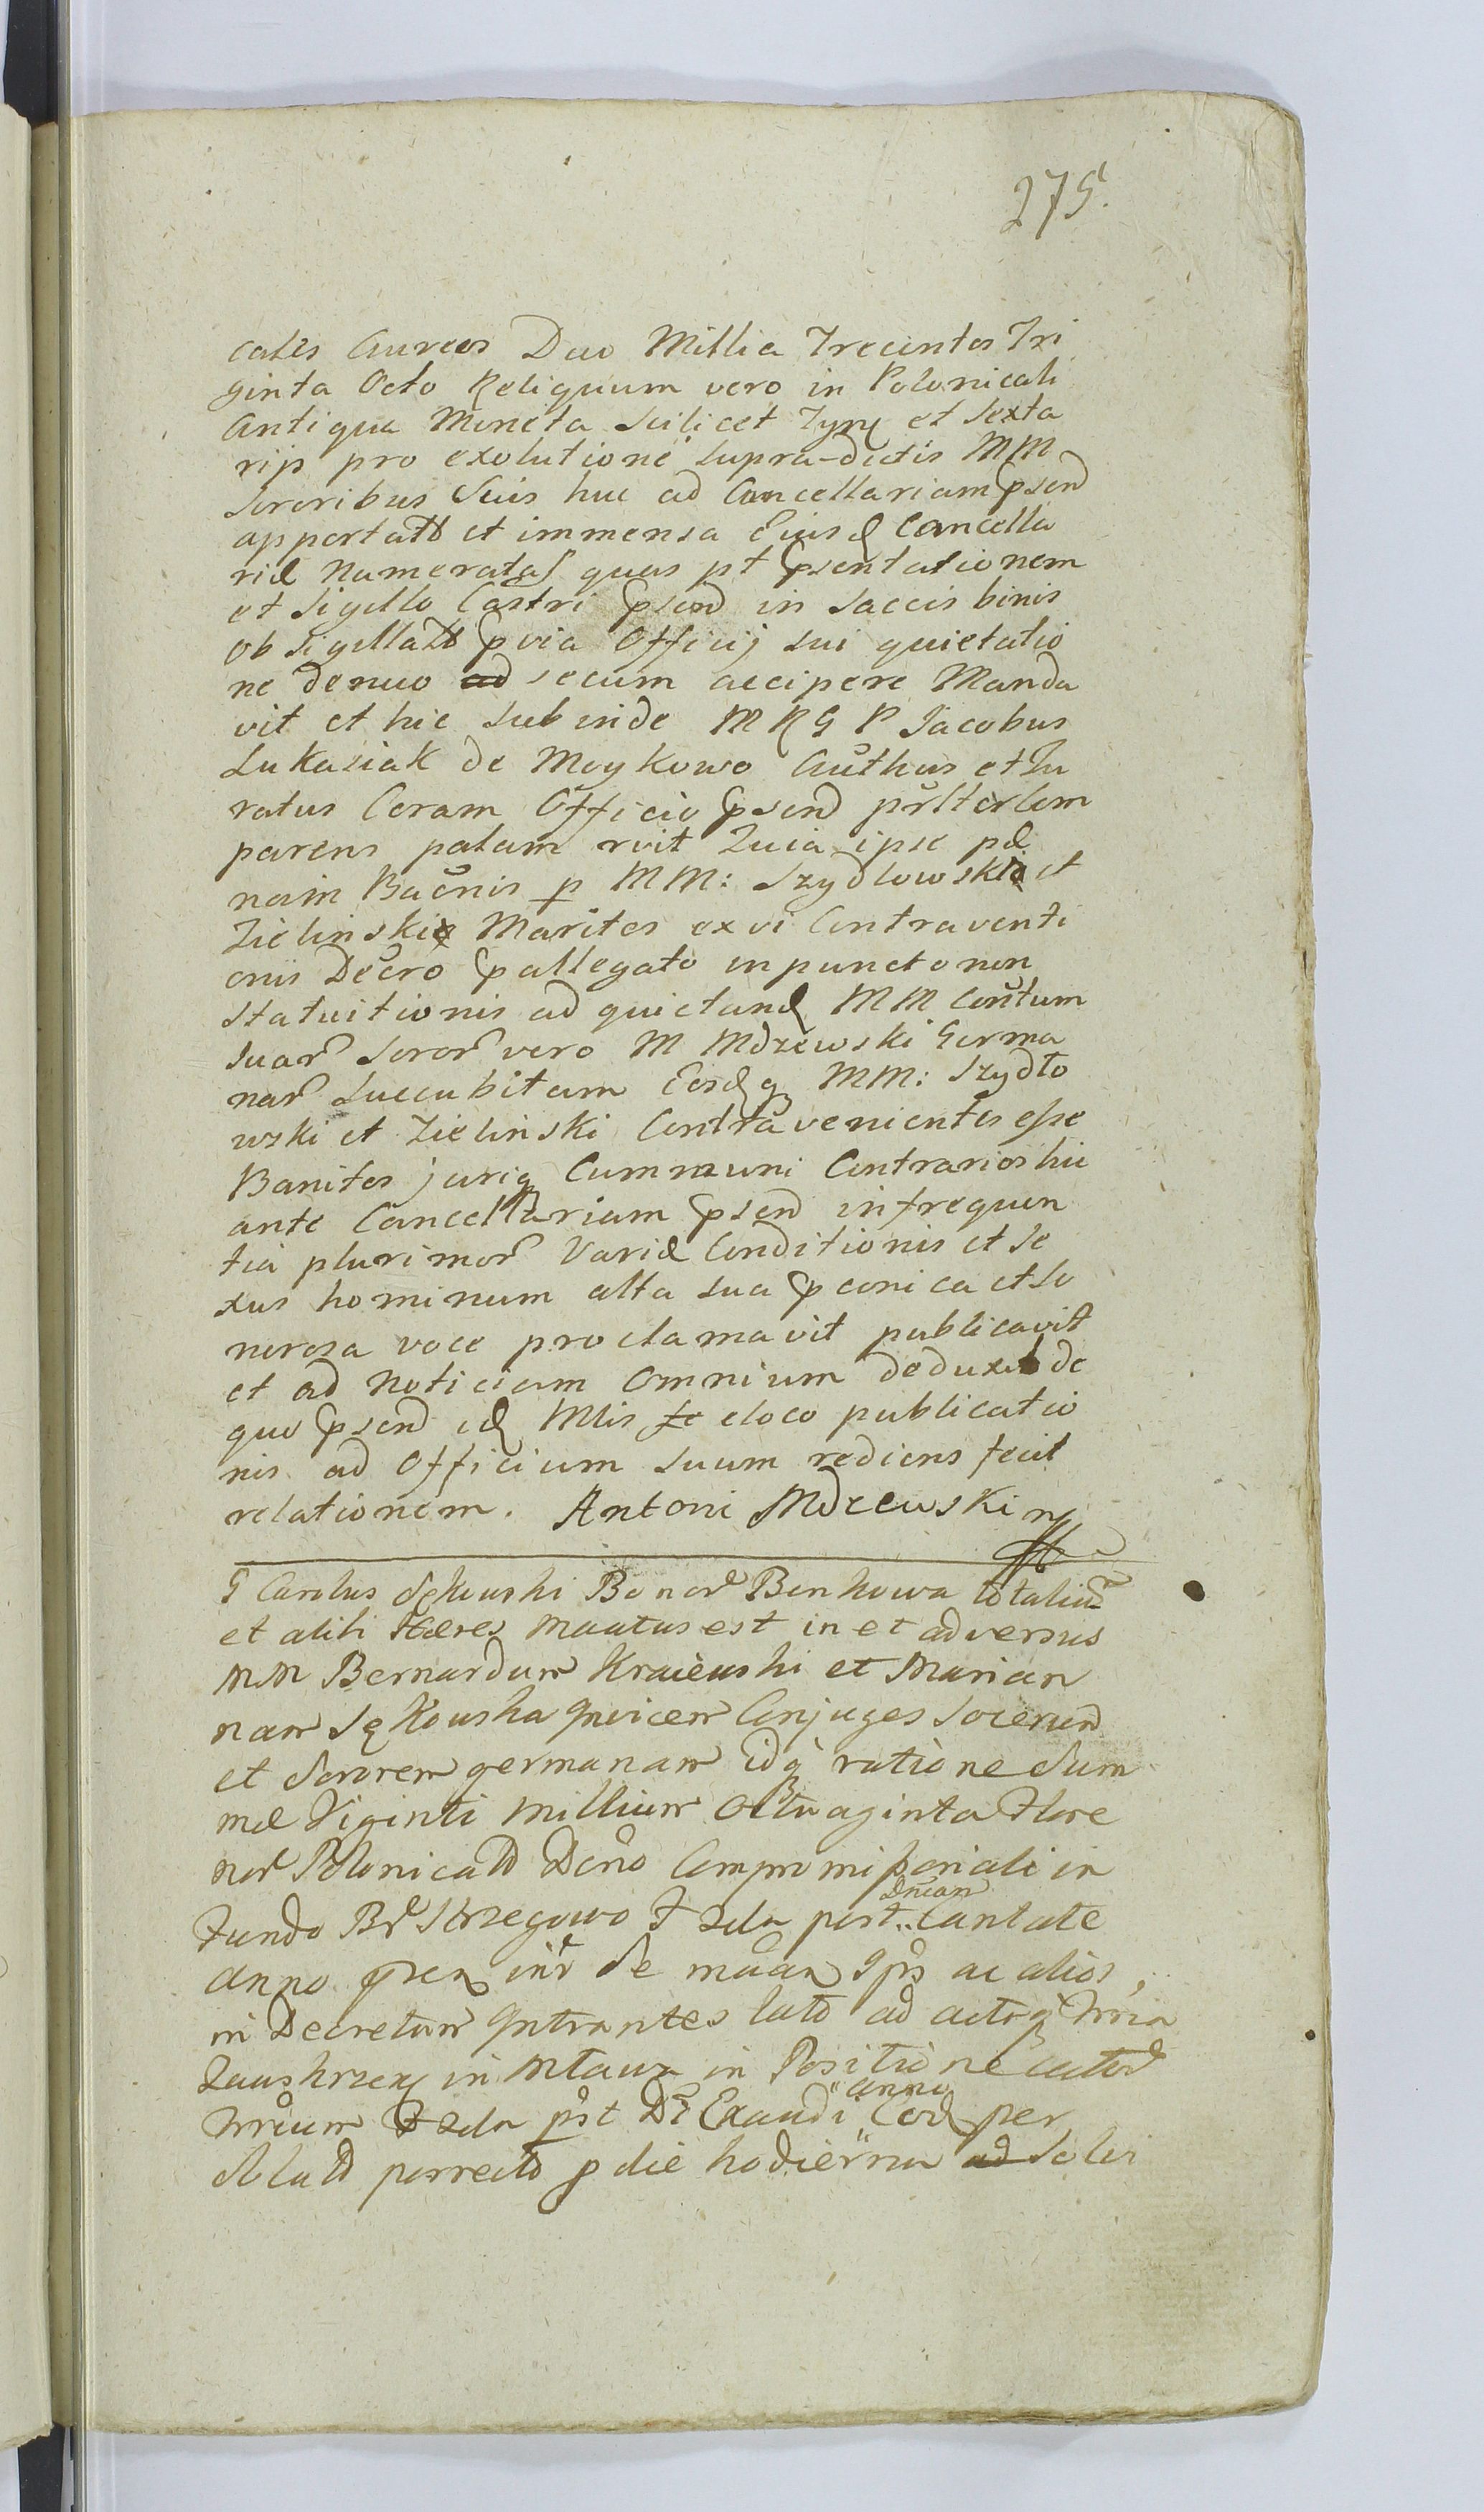 275.
cales Aureos Duo Millia Trecentos Tri
ginta Octo Reliquum vero in Polonicali
Antiqua Moneta Scilicet Tynf et Sexta
rijs pro exolutione supra-dictis MM
Sororibus Suis huc ad Cancellariam psend
apportatt et immensa Eiusd Cancella
riæ Numeratas quas pt psentationem
et Sigillo Castri psend in Saccis binis
obsigillatt pvia Officij sui quietatio
ne denuo ad secum accipere Manda
vit et hic subinde M R G P Jacobus
Lukasiak de Moykowo Authus et Ju
ratus Coram Officio psend pslterlem
parens palam rvit Quia ipse pæ
nam Baenis p MM: Szydlowskie et
Zielinskie Maritos ex vi Contraventi
onis Decro pallegato in puncto non
Statuitionis ad quietand MM Contum
suar Soror vero M Mdzewski Germa
nar Succubitam Eosdq MM: Szydło
wski et Zielinski Contravenientes esse
Banitos juriq Cummuni Contrarios hic
ante Cancellariam psend in frequen
tia plurimor Variæ Conditionis et Se
xus hominum alta sua pconica et So
norosa voce proclamavit publicavit
et ad Noticiam Omnium deduxit de
quo psend id Mlis fe eloco publicatio
nis ad Officium suum rediens fecit
relationem. Antoni Mdzewski
G Carolus Sękowski Bonor Benkowa totaliu
et alibi Hæres Maatus est in et adversus
MM Bernardum Kraiewski et Marian
nam Sękowska invicem Conjuges Socerum
et Sororem germanam idq ratione Sum
mæ Viginti Millium Octuaginta Flore
nor Polonicatt Dcro Compromissoriali in
Fundo Br Strzegowo F 2da post Dnicam Cantate
anno
in Decretum Intrantes latt ad actaq Trria
Zauskrzen in Mlawa in Positione actor
Trrium F 2da post Dc Exaudi Anno Eod per
Oblatt porrectt p die hodierna ad Solvi